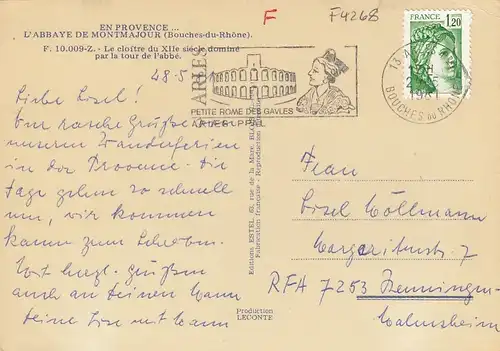 EN PROVENCE ...
L'ABBAYE DE MONTMAJOUR (Bouches-du-Rhône).
F. 10.009-Z. - Le cloître du XIIe siècle dominé
par la tour de l'abbé.
F
F4268
FRANCE
1,20
13 ARLES
1981
BOUCHES DU RHÔNE
ARLES
PETITE ROME DES GAULES
48.5
Liebe Lisel!
Nur rasche Grüße von
unseren Wanderferien
in der Provence. Die
Tage gehen so schnell
um, wir kommen
kaum zum Schreiben.
Mit herzl. Grüßen
auch an deinen Mann
deine Lise mit Mann
Editions ESTEL, 62, rue de la Mare,
Fabrication française - Reproduction
Production
LECONTE
Frau
Lisel Möllmann
Margaritenstr. 7
RFA 7253 Renningen-
Malmsheim